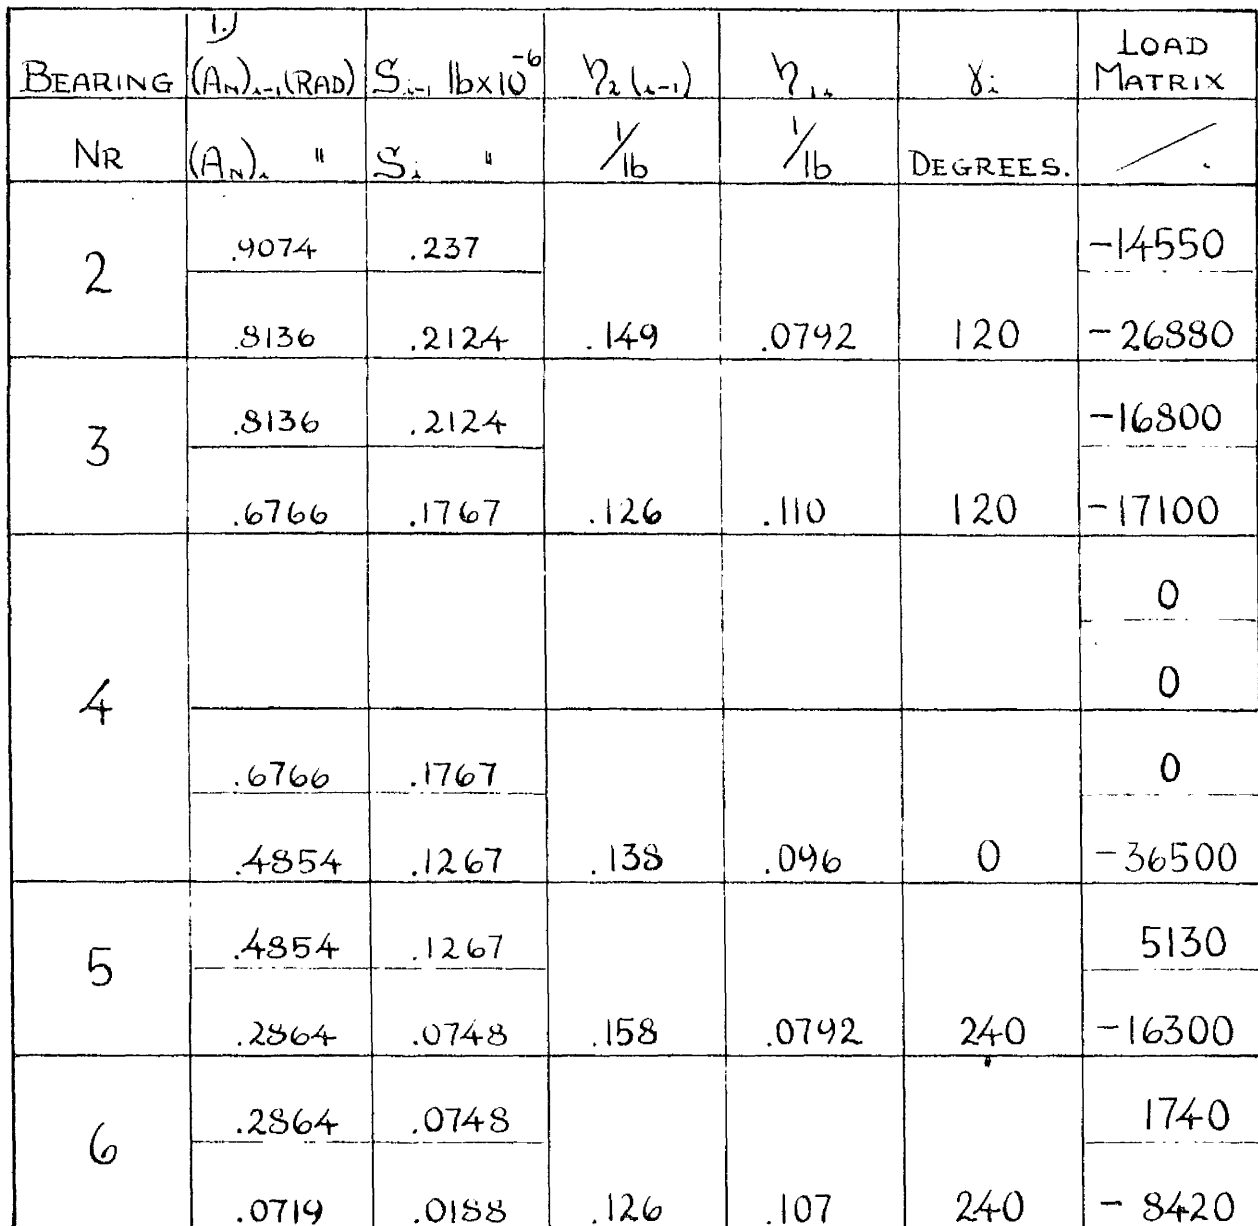 BEARING (A_N)_{i-1} (RAD) S_{i-1} lb×10^{-6} η_{2(i-1)} η_{1i} γ_i LOAD MATRIX
1.)
NR (A_N)_i " S_i " 1/lb 1/lb DEGREES. /.
.9074 .237 -14550
2
.8136 .2124 .149 .0792 120 -26880
.8136 .2124 -16800
3
.6766 .1767 .126 .110 120 -17100
0
4 0
.6766 .1767 0
.4854 .1267 .138 .096 0 -36500
.4854 .1267 5130
5
.2864 .0748 .158 .0792 240 -16300
.2864 .0748 1740
6
.0719 .0188 .126 .107 240 - 8420